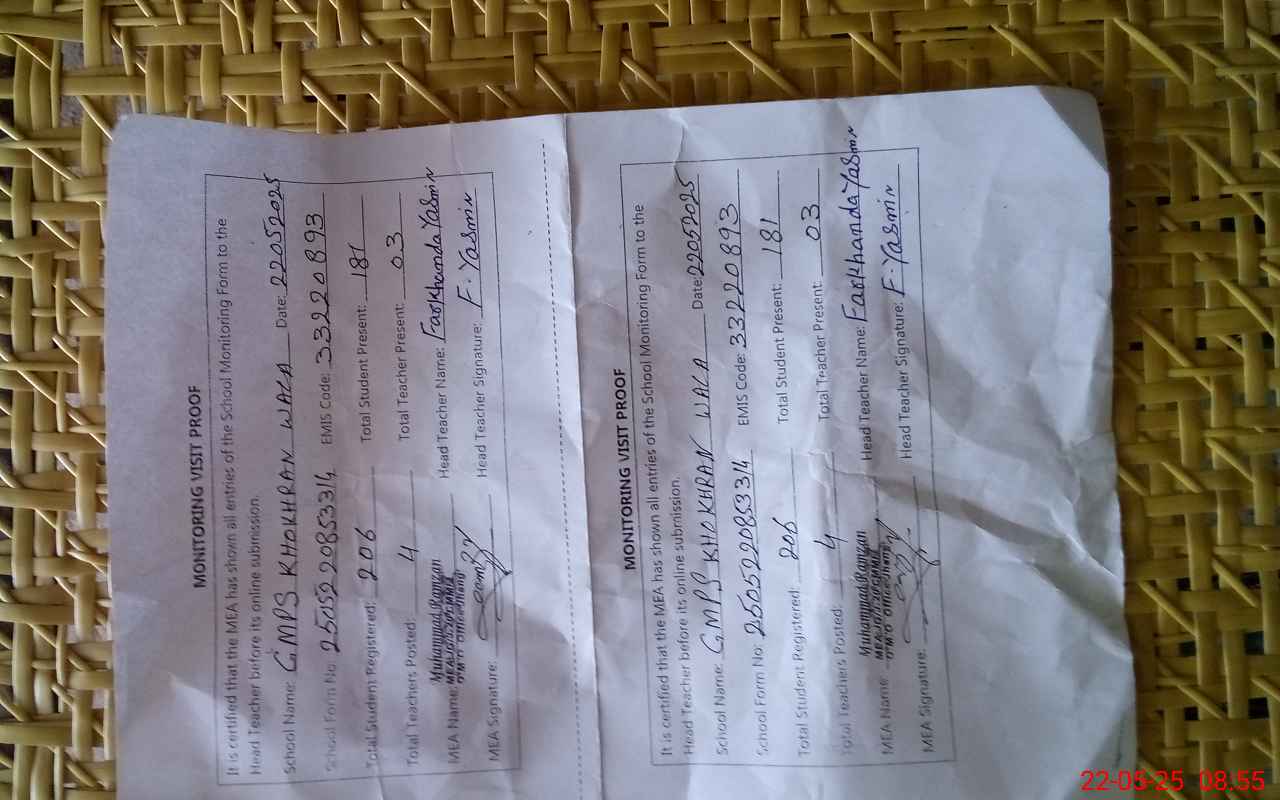 MONITORING VISIT PROOF
It is certified that the MEA has shown all entries of the School Monitoring Form to the
Head Teacher before its online submission.
School Name: GMPS KHOKHRAN WALA Date: 22052025
School Form No: EMIS Code: 33220893
Total Student Registered: 206 Total Student Present: 181
Total Teachers Posted: 4 Total Teacher Present: 03
MEA Name: Muhammad Head Teacher Name: Farkhanda Yasmin
MEA Signature: Head Teacher Signature: F. Yasmin
MONITORING VISIT PROOF
It is certified that the MEA has shown all entries of the School Monitoring Form to the
Head Teacher before its online submission.
School Name: GMPS KHOKHRAN WALA Date: 22052025
School Form No: 2505220853314 EMIS Code: 33220893
Total Student Registered: 206 Total Student Present: 181
Total Teachers Posted: 4 Total Teacher Present: 03
MEA Name: Muhammad Head Teacher Name: Farkhanda Yasmin
MEA Signature: Head Teacher Signature: F. Yasmin
22-05-25 08:55